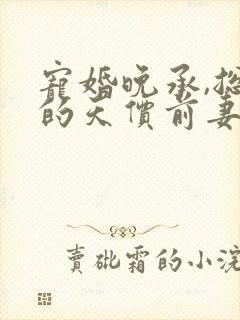 寵婚晚承,總
的天價前妻
賣砒霜的小浣